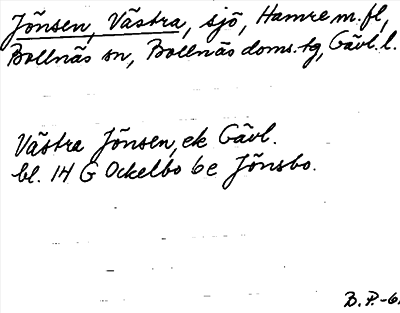 Jönsen, Västra, sjö, Hamre m.fl,
Bollnäs sn, Bollnäs doms.tg, Gävl.l.
Västra Jönsen, ek Gävl.
bl. 14 G Ockelbo 6e Jönsbo.
B.P.-6